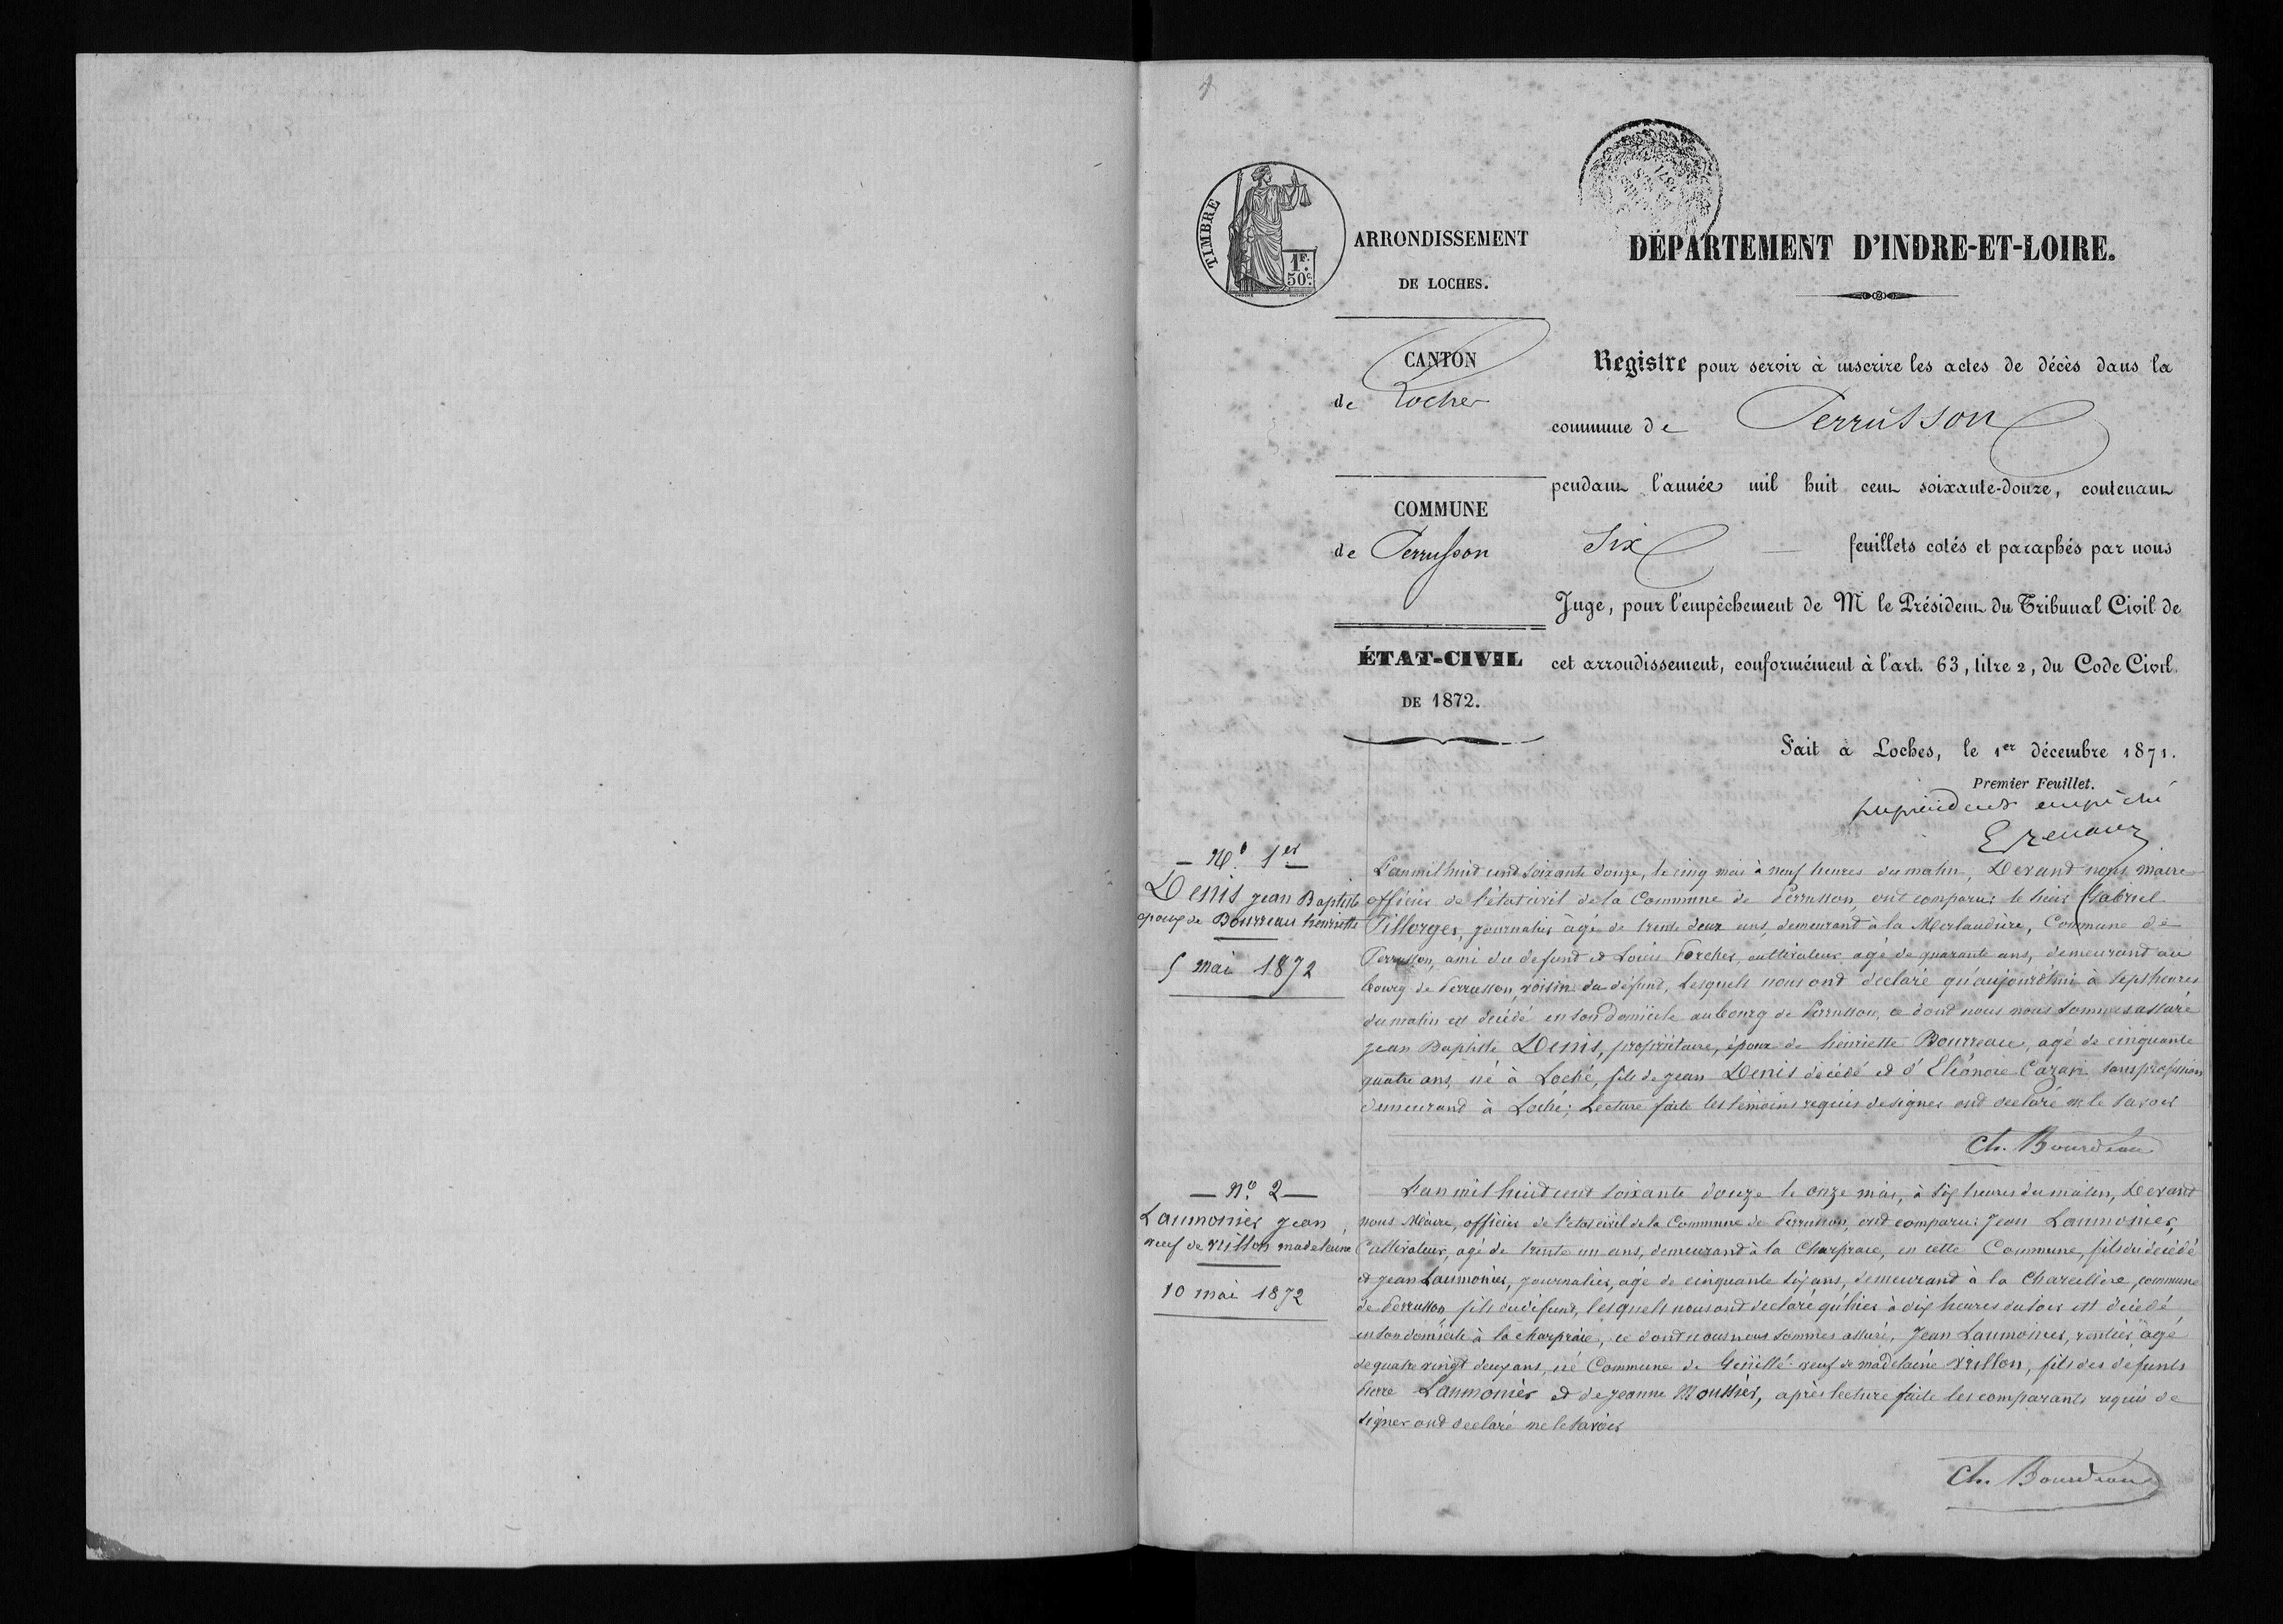 TIMBRE
1F.
50c.
ARRONDISSEMENT
DE LOCHES.
CANTON
de Loches
COMMUNE
de Perrusson
ÉTAT-CIVIL
DE 1872.
DÉPARTEMENT D'INDRE-ET-LOIRE.
Registre pour servir à inscrire les actes de décès dans la
commune de Perrusson
pendant l'année mil huit cent soixante-douze, contenant
Six feuillets cotés et paraphés par nous
Juge, pour l'empêchement de M le Président du Tribunal Civil de
cet arrondissement, conformément à l'art. 63, titre 2, du Code Civil.
Fait à Loches, le 1er décembre 1871.
Premier Feuillet.
empêché
- No. 1er
Denis jean Baptiste
époux de Bourreau henriette
5 mai 1872
L'an mil huid cend soixante douze, le cinq mai à neuf heures du matin, Devand nous maire
officier de l'état civil de la Commune de Perrusson, ont comparus le sieur Gabriel
Pillorges, journalier âgé de trente deux ans, demeurand à la Merlaudière, Commune de
Perrusson, ami du defund et Louis Porcher, cultivateur agé de quarante ans, demeurand au
bourg de Perrusson, voisin du défund, Lesquels nous ond declaré qu'aujourd'hui à sept heures
du matin est décédé en son domicile au bourg de Perrusson, ce dont nous nous sommes assuré
jean Baptiste Denis, propriétaire, époux de henriette Bourreau, agé de cinquante
quatre ans, né à Loché, fils de jean Denis décédé et d'Eléonore sans profession
demeurand à Loché; Lecture faite les témoins requis de signer ond declaré ne le savoir
Ch. Bourdeau
- No. 2 -
Laumonier jean
veuf de madelaine
10 mai 1872
L'an mil huid cend soixante douze le onze mai, à six heures du matin, Devand
nous Maire, officier de l'etat civil de la Commune de Perrusson, ond comparu: Jean Laumonier,
Cultivateur, agé de trente un ans, demeurand à la Charpraie, en cette Commune, fils du décédé
et jean Laumonier, journalier, agé de cinquante six ans, demeurand à la commune
de Perrusson fils du défund, lesquels nous ond declaré qu'hier à dix heures du soir est décédé
en son domicile à la charpraie, ce dont nous nous sommes assuré, Jean Laumonier, rentier agé
de quatre vingt deux ans, né Commune de Genillé veuf de madelaine fils des défunts
Pierre Laumonier et de jeanne Moussier, après lecture faite les comparants requis de
signer ond declaré ne le savoir
Ch. Bourdeau